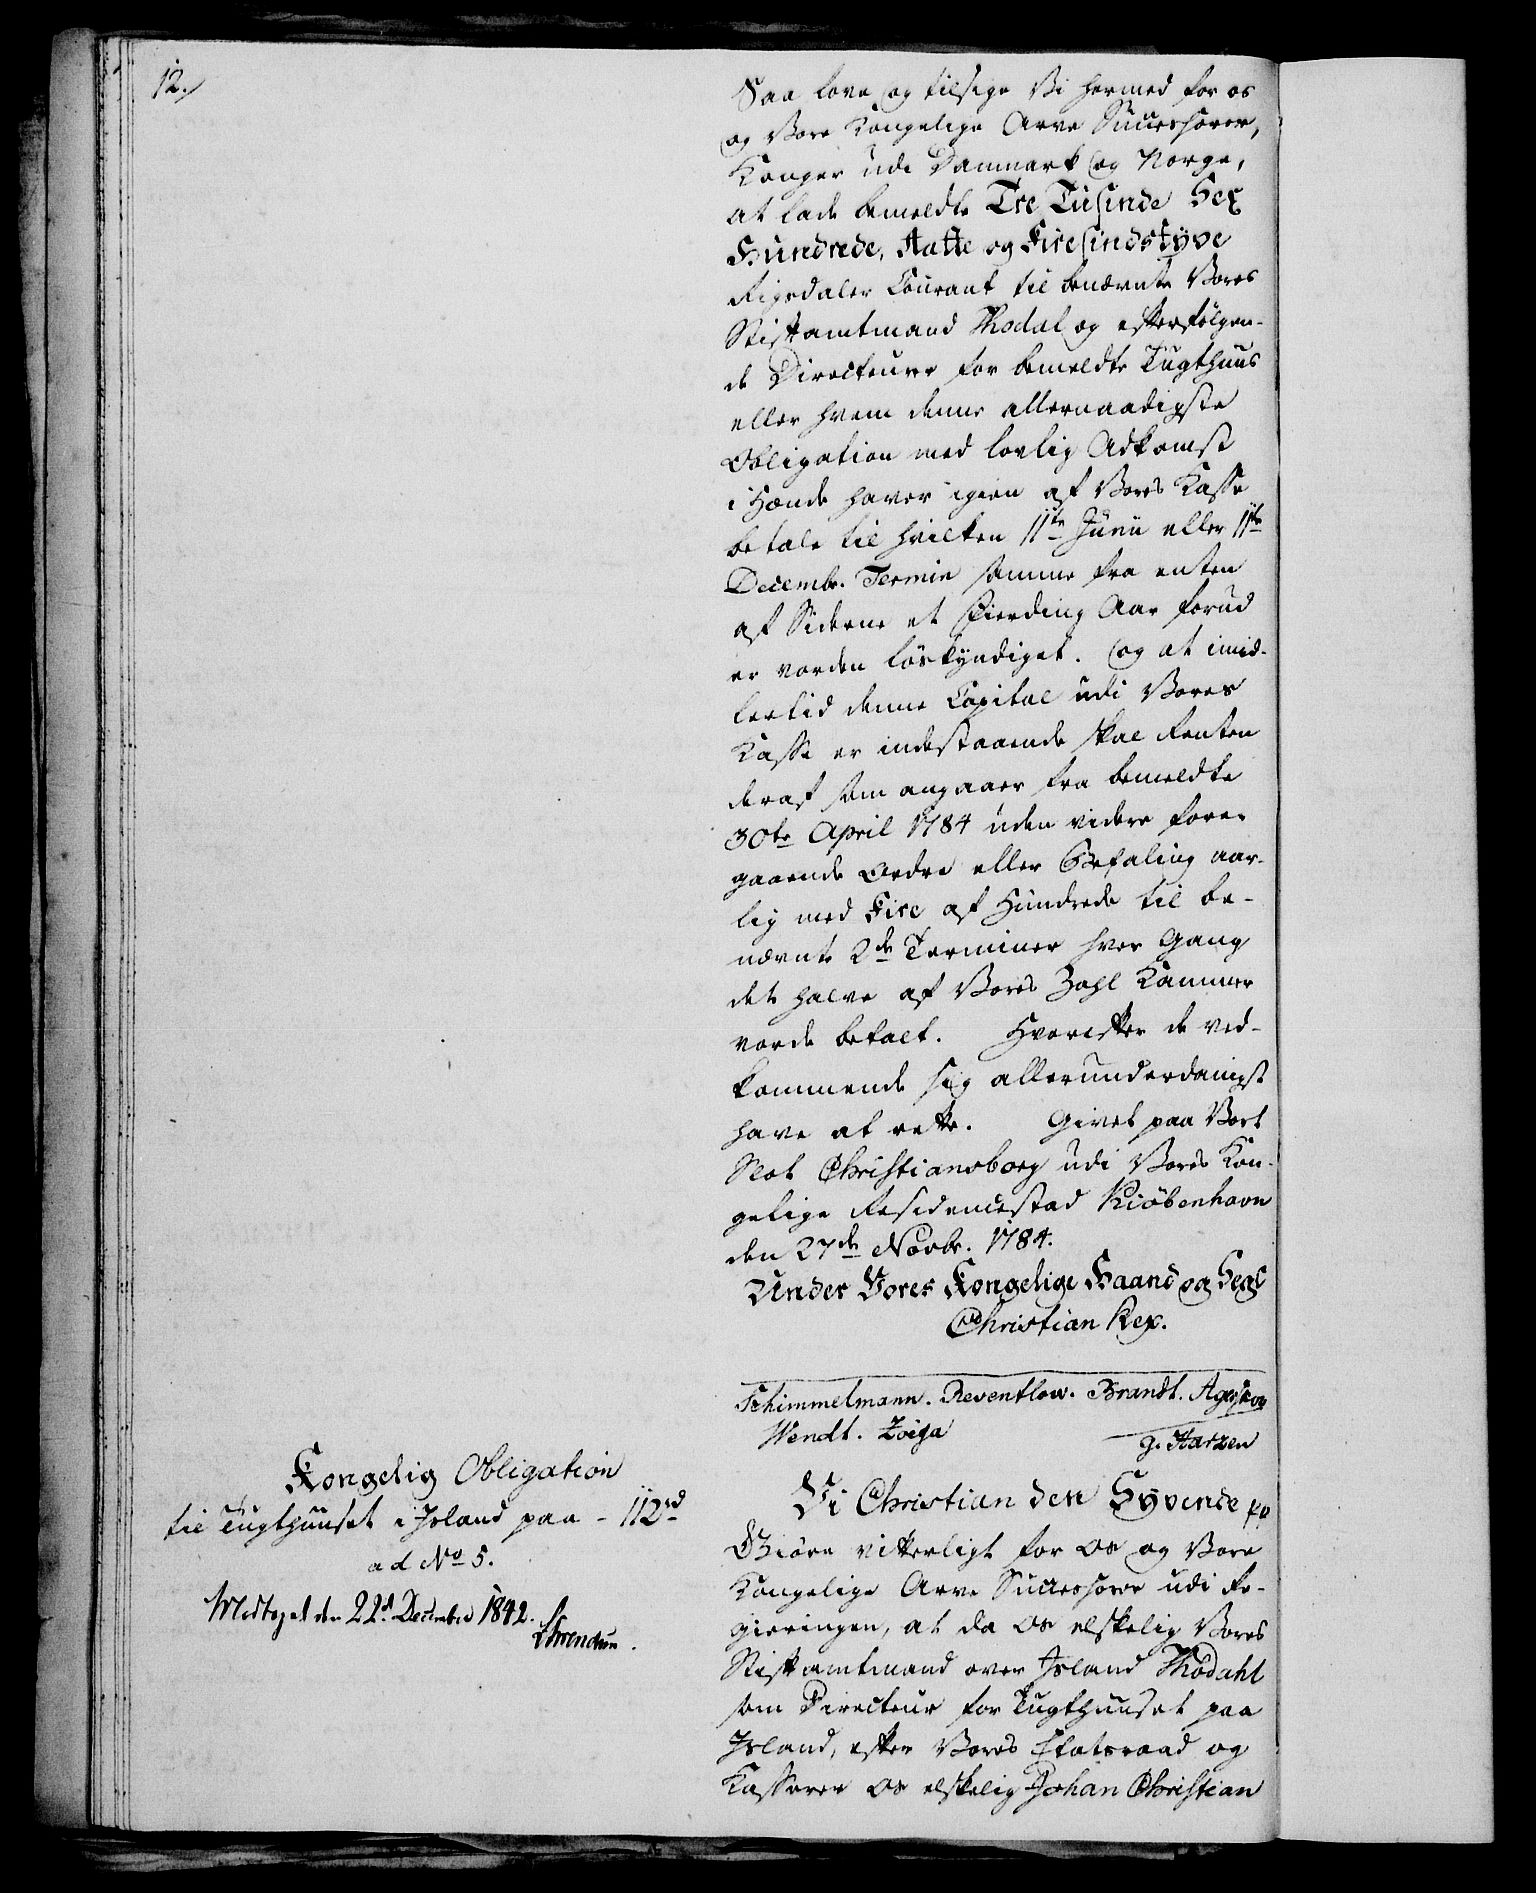 12.
Saa love og tilsige Vi hermed for os
og Vore Kongelige Arve Successorer,
Konger udi Danmark og Norge,
at lade bemeldte Tre Tusinde Sex
Hundrede, Aatte og Firesindstyve
Rigsdaler Courant til benævnte Vores
Stiftamtmand Thodal og efterfølgen-
de Directeurer for bemeldte Tugthuus
eller hvem denne allernaadigste
Obligation med lovlig Adkomst
i Hænde haver igien af Vores Kasse
betale til hvilken 11te Junii eller 11te
Decembr. Termin samme fra enten
af Siderne et Fierding Aar forud
er vorden løskyndiget. Og at imid-
lertid denne Capital udi Vores
Kasse er indestaaende skal Renten
deraf som angaaer fra bemeldte
30te April 1784 uden videre fore-
gaaende Ordre eller Befaling aar-
lig med Fire af Hundrede til be-
nævnte 2de Terminer hver Gang
det halve af Vores Zahl Kammer
vorde betalt. Hvorefter de ved-
kommende sig allerunderdanigst
have at rette. Givet paa Vort
Slot Christiansborg udi Vores Kon-
gelige Residencestad Kiöbenhavn
den 27de Novbr. 1784.
Under Vores Kongelige Haand og Segl
Christian Rex.
Schimmelmann. Reventlow. Brandt. Ageskov
Wendt. Zoëga
g. Harzen
Kongelig Obligation
til Tugthuuset i Island paa - 112rd
ad No 5.
Modtaget den 22d December 1842.
Vi Christian den Syvende pp
Giöre vitterligt for os og Vore
Kongelige Arve Successorer udi Re-
gieringen, at da Os elskelig Vores
Stiftamtmand over Island Thodahl
som Directeur for Tugthuuset paa
Island, efter Vores Etatsraad og
Kasserer Os elskelig Johan Christian